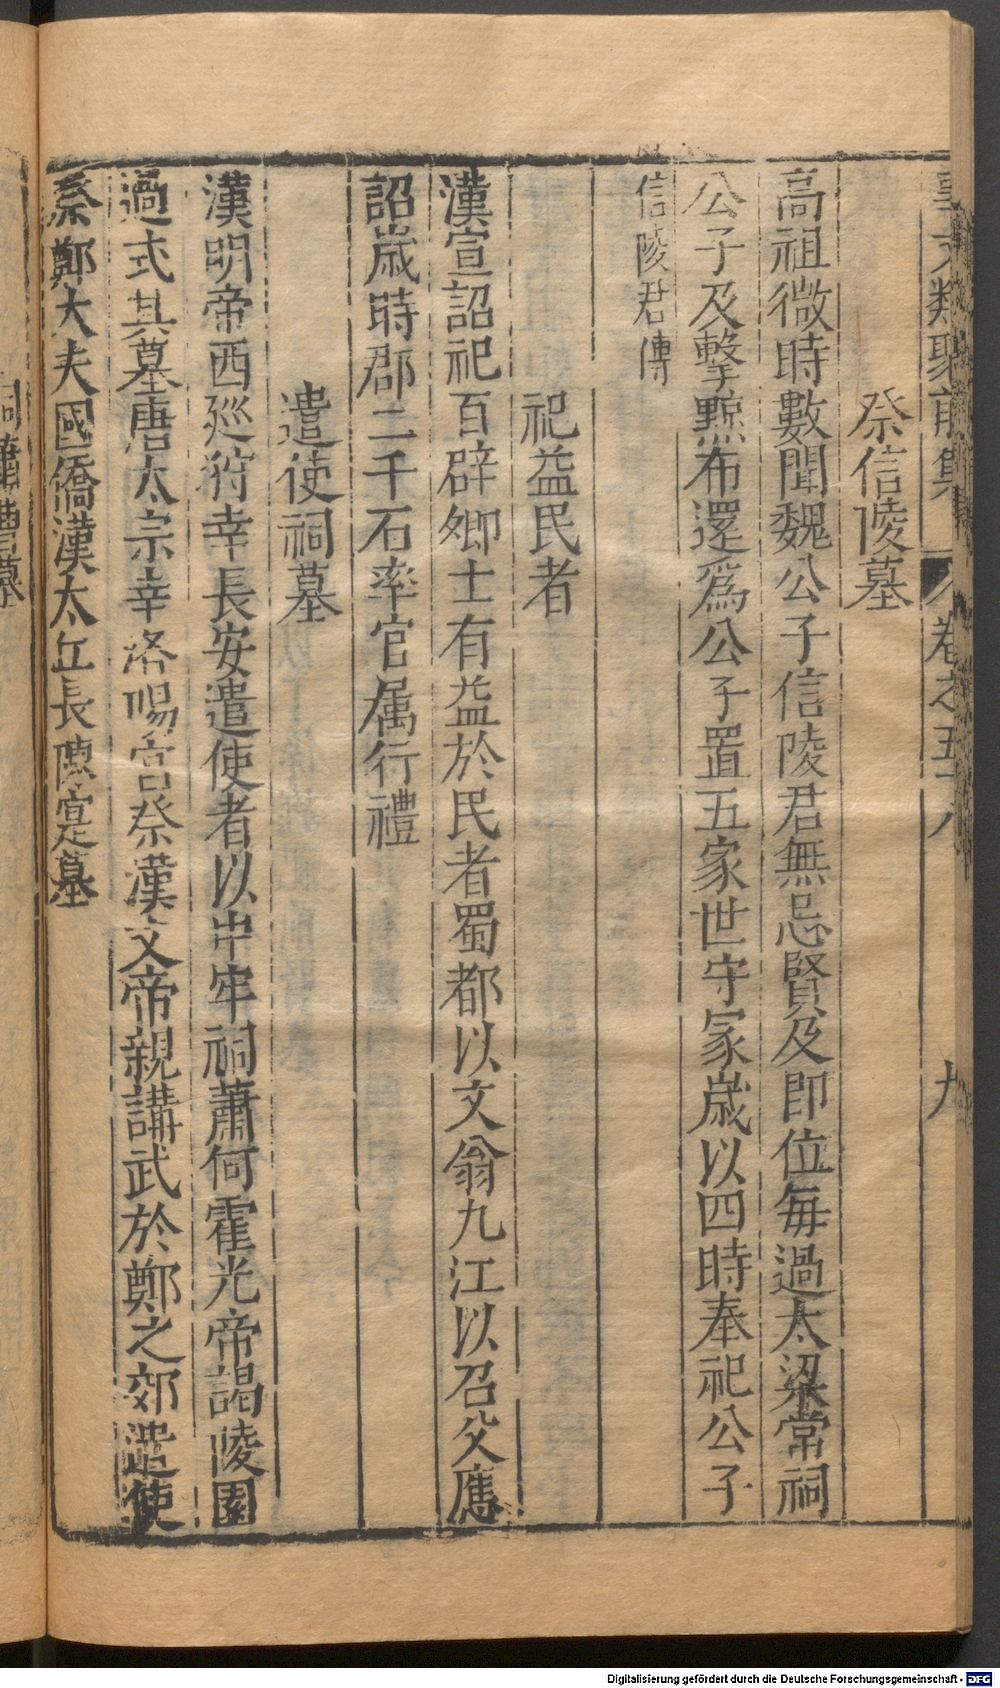 事文類聚前集 卷之五十八 九
祭信陵墓
高祖微時數聞魏公子信陵君無忌賢及即位每過大梁常祠
公子及擊黥布還爲公子置五家世守冢歲以四時奉祀公子
信陵君傳
祀益民者
漢宣詔祀百辟卿士有益於民者蜀都以文翁九江以召父應
詔歲時郡二千石率官属行禮
遣使祠墓
漢明帝西廵狩幸長安遣使者以中牢祠蕭何霍光帝謁陵園
過式其墓唐太宗幸洛陽宮祭漢文帝親講武於鄭之郊遣使
祭鄭大夫國僑漢太丘長陳寔墓
祠蕭曹墓
Digitalisierung gefördert durch die Deutsche Forschungsgemeinschaft - DFG